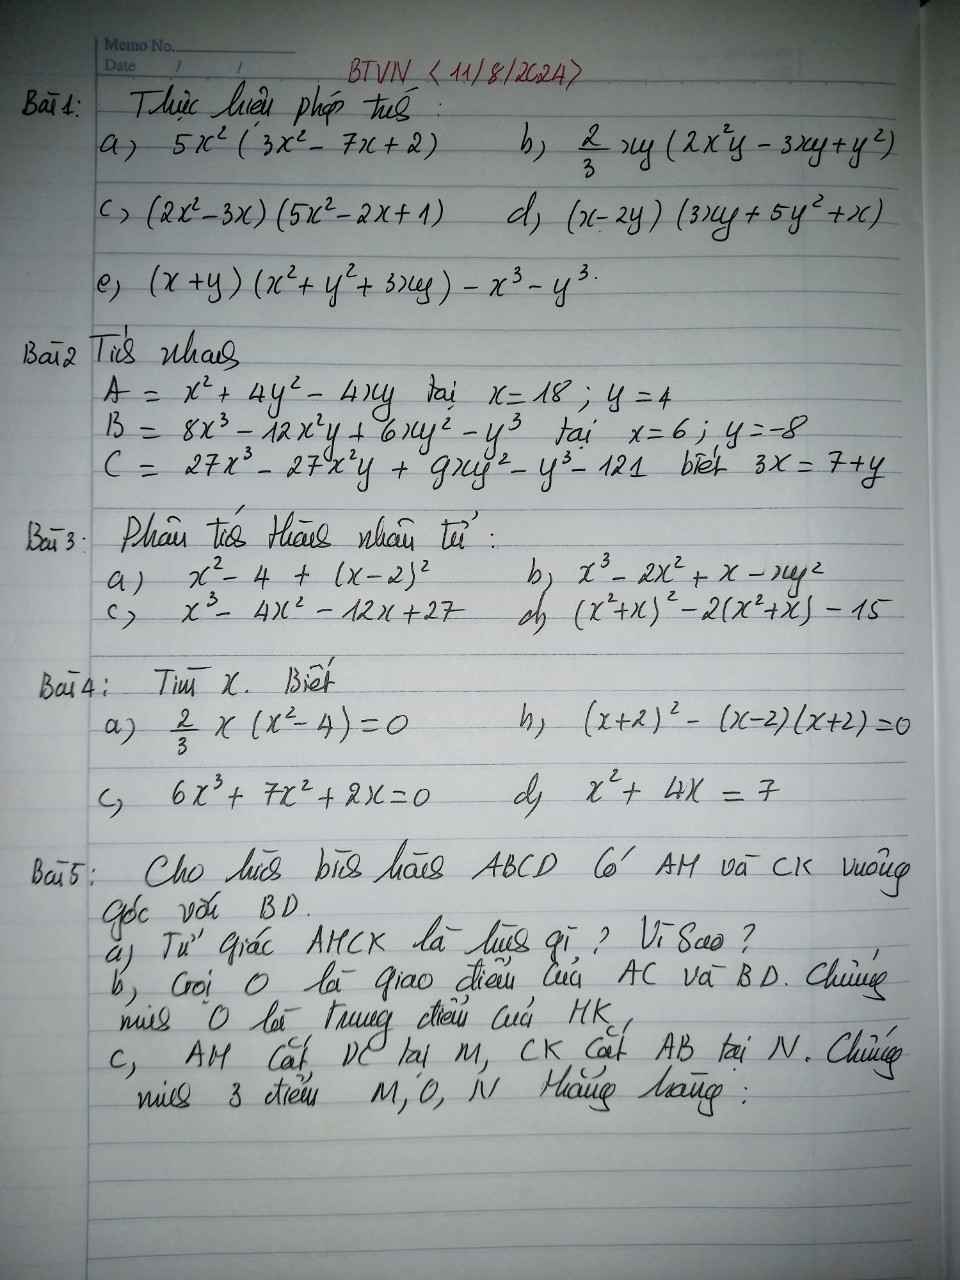 Memo No.
Date / /
BTVN < 11/8/2024 >
Bài 1: Thực hiện phép tính :
a) 5x² ( 3x² - 7x + 2 ) b) 2/3 xy ( 2x²y - 3xy + y² )
c) (2x² - 3x) (5x² - 2x + 1) d) (x - 2y) (3xy + 5y² + x)
e) (x + y) (x² + y² + 3xy) - x³ - y³.
Bài 2 Tính nhanh
A = x² + 4y² - 4xy tại x = 18 ; y = 4
B = 8x³ - 12x²y + 6xy² - y³ tại x = 6 ; y = -8
C = 27x³ - 27x²y + 9xy² - y³ - 121 biết 3x = 7 + y
Bài 3 : Phân tích thành nhân tử :
a) x² - 4 + (x - 2)² b) x³ - 2x² + x - xy²
c) x³ - 4x² - 12x + 27 d) (x² + x)² - 2(x² + x) - 15
Bài 4 : Tìm x. Biết
a) 2/3 x (x² - 4) = 0 b) (x + 2)² - (x - 2)(x + 2) = 0
c) 6x³ + 7x² + 2x = 0 d) x² + 4x = 7
Bài 5 : Cho hình bình hành ABCD Có AH và CK vuông
góc với BD.
a) Tứ giác AHCK là hình gì ? Vì Sao ?
b) Gọi O là giao điểm của AC và BD. Chứng
minh O là trung điểm của HK
c) AH cắt DC tại M, CK cắt AB tại N. Chứng
minh 3 điểm M, O, N thẳng hàng :